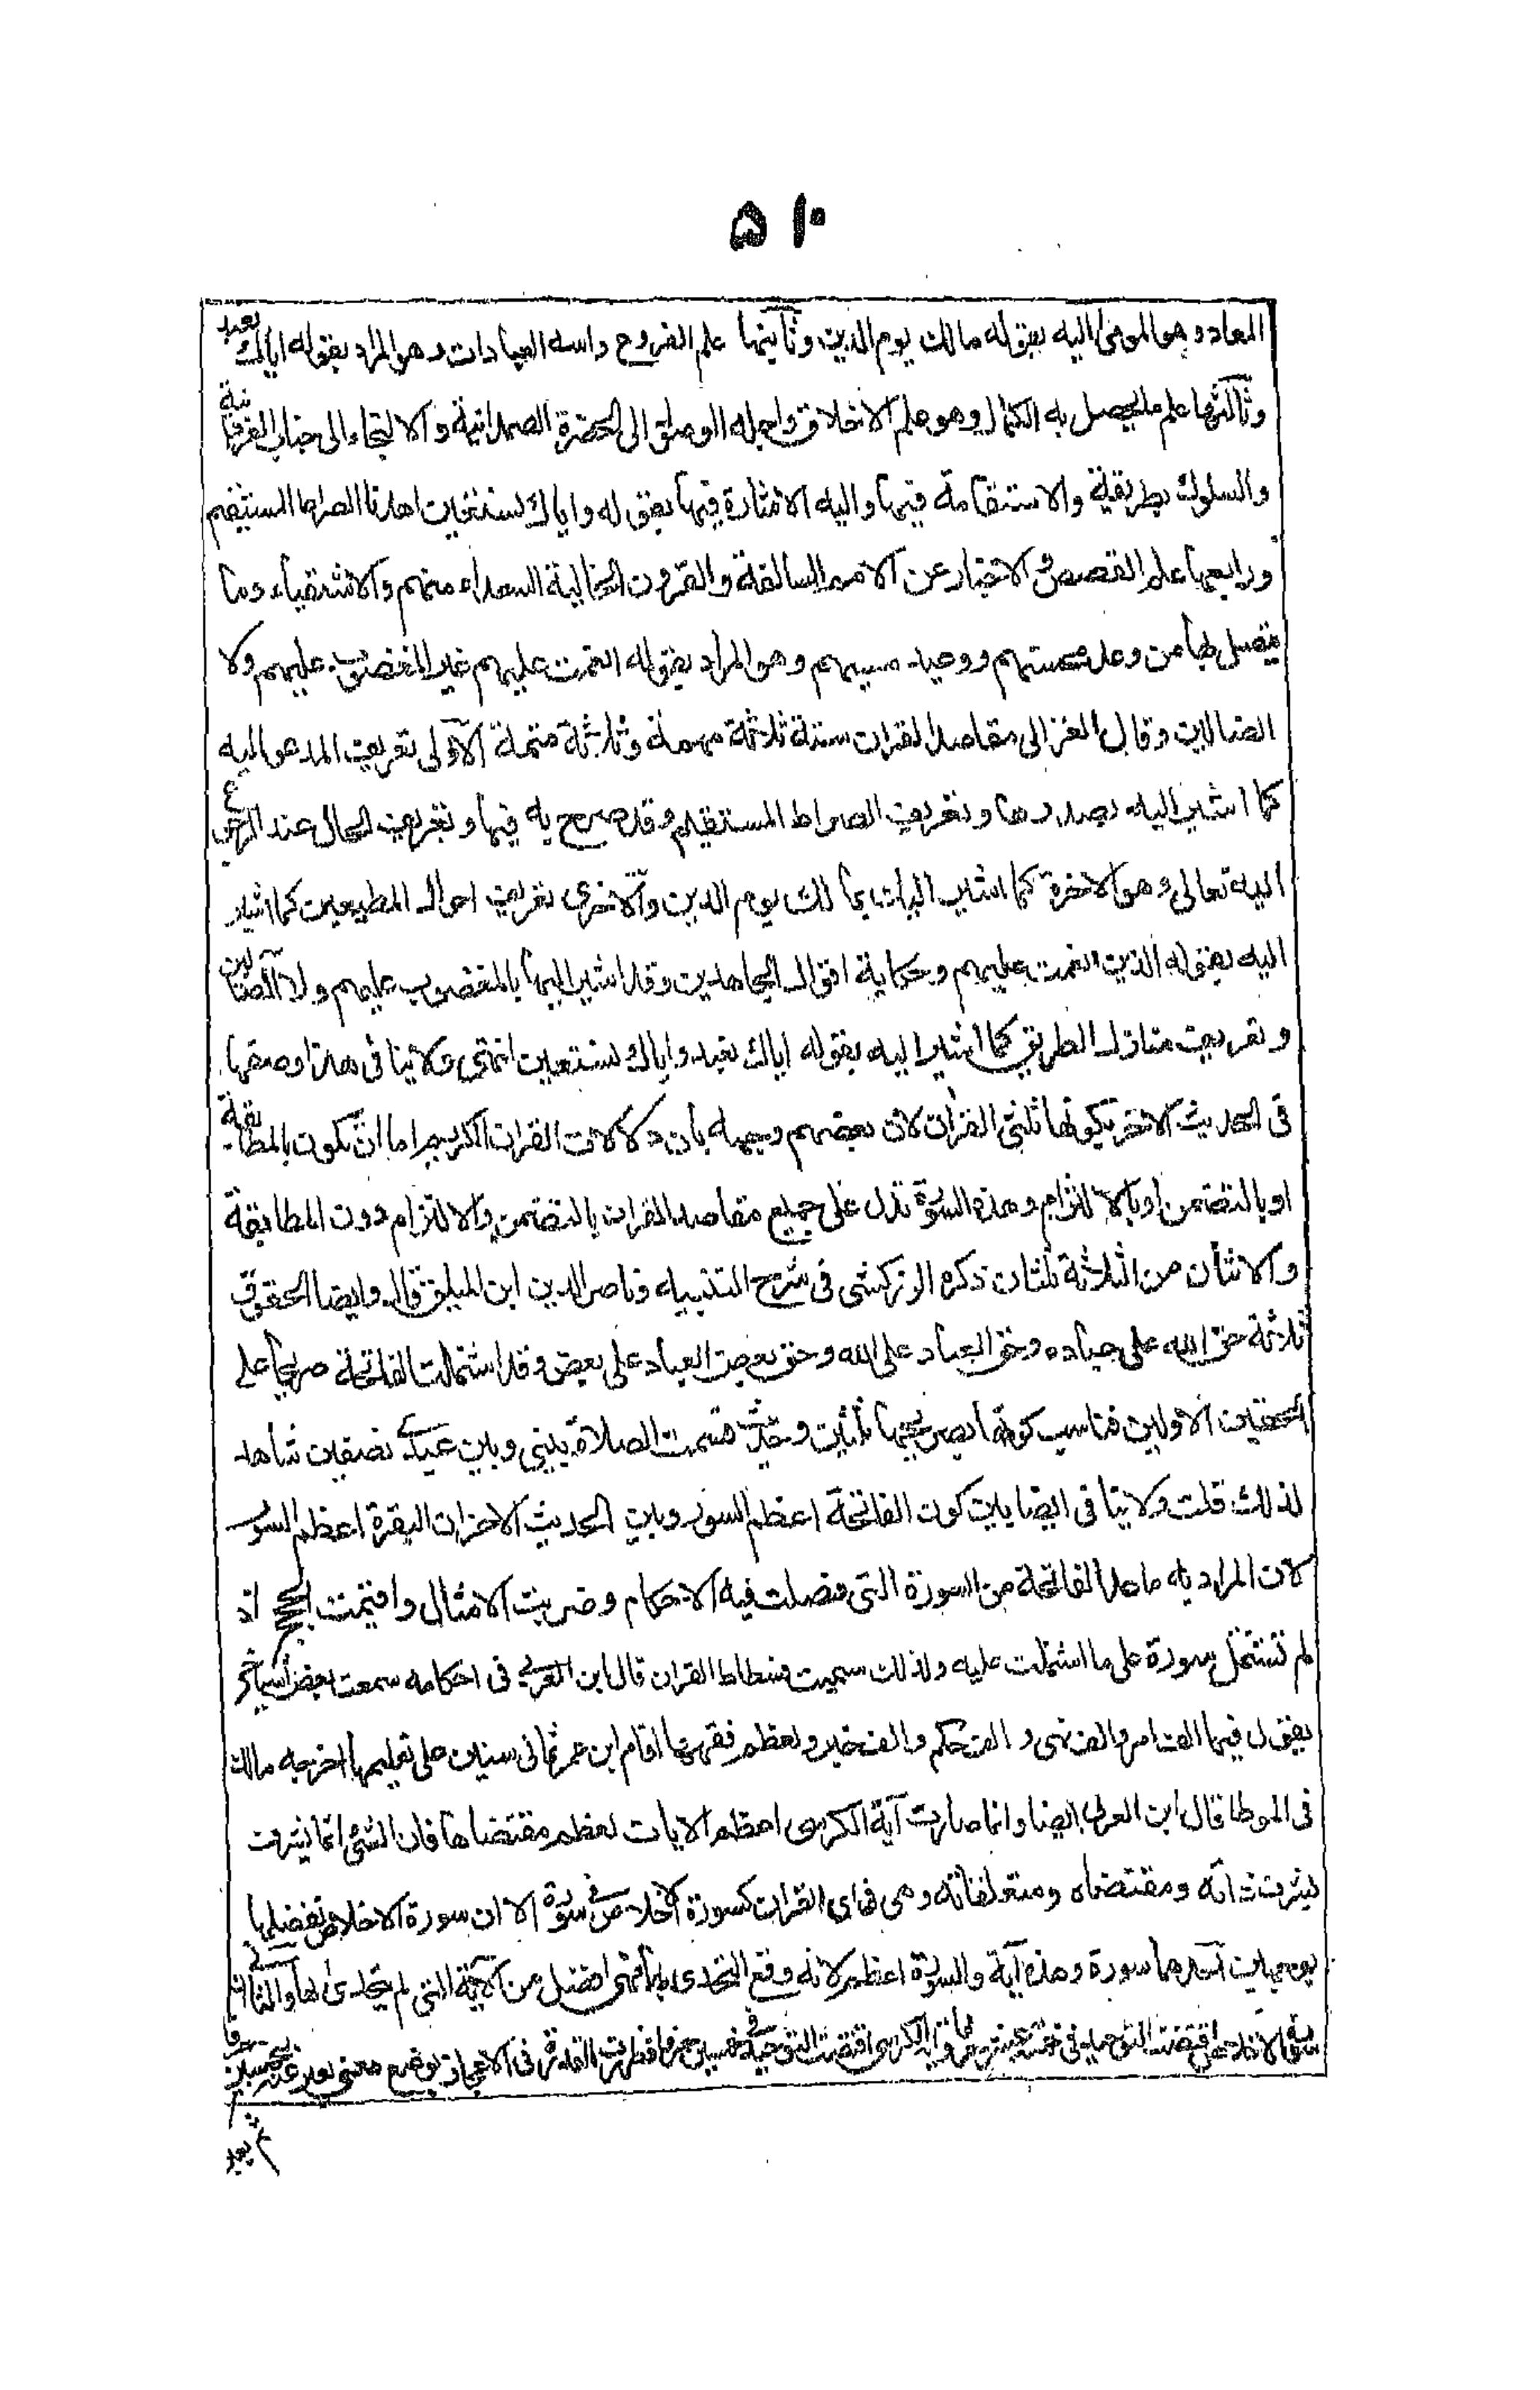 ٥١٠
المعاد وهو المومى اليه بقوله مالك يوم الدين وثانيها علم الفروع واسه العبادات وهو المراد بقوله اياك نعبد
وثالثها علم ما يحصل به الكمال وهو علم الاخلاق واجله الوصول الى الحضرة الصمدانية والالتجاء الى جناب الفردانية
والسلوك بطريقة والاستقامة فيها واليه الاشارة فيها بقوله واياك نستعين اهدنا الصراط المستقيم
ورابعها علم القصص والاخبار عن الامم السالفة والقرون الخالية السعداء منهم والاشقياء وما
يتصل بها من وعد محسنهم ووعيد مسيهم وهو المراد بقوله انعمت عليهم غير المغضوب عليهم ولا
الضالين وقال الغزالى مقاصد القران ستة ثلاثة مهمة وثلاثة متمة الاولى تعريف المدعو اليه
كما اشير اليه بصدرها وتعريف الصراط المستقيم وقد صرح به فيها وتعريف الحال عند الرجوع
اليه تعالى وهو الاخرة كما اشير اليه بمالك يوم الدين والاخرى تعريف احوال المطيعين كما اشير
اليه بقوله الذين انعمت عليهم وحكاية اقوال الجاهدين وقد اشير اليها بالمغضوب عليهم ولا الضالين
وتعريف منازل الطريق كما اشير اليه بقوله اياك نعبد واياك نستعين انتهى ولا ينافى هذا وصفها
فى الحديث الاخر بكونها ثلثى القران لان بعضهم وجهه بان دلالات القران الكريم اما ان تكون بالمطابقة
او بالتضمن او بالالتزام وهذه السورة تدل على جميع مقاصد القران بالتضمن والالتزام دون المطابقة
والاثنان من الثلاثة ثلثان ذكره الزركشى فى شرح التنبيه وناصر الدين ابن الميلق قال وايضا الحقوق
ثلاثة حق الله على عباده وحق العباد على الله وحق بعض العباد على بعض وقد اشتملت الفاتحة صريحا على
الحقين الاولين فناسب كونها بصريحها ثلثين وحديث قسمت الصلاة بينى وبين عبدى نصفين شاهد
لذلك قلت ولا ينافى ايضا بين كون الفاتحة اعظم السور وبين الحديث الاخر ان البقرة اعظم السور
لان المراد به ما عدا الفاتحة من السورة التى فصلت فيه الاحكام وضربت الامثال واقيمت الحجج اذ
لم تشتمل سورة على ما اشتملت عليه ولذلك سميت فسطاط القران قال ابن العربى فى احكامه سمعت بعض اشياخى
يقول فيها الف امر والف نهى والف حكم والف خبر ولعظم فقهها اقام ابن عمر ثمانى سنين على تعليمها اخرجه مالك
فى الموطا قال ابن العربى ايضا وانما صارت آية الكرسى اعظم الايات لعظم مقتضاها فان الشئ انما يشرف
بشرف ذاته ومقتضاه ومتعلقاته وهى فى اى القران كسورة الاخلاص فى سوره الا ان سورة الاخلاص تفضلها
بوجهين احدهما سورة وهذه آية والسورة اعظم لانه وقع التحدى بها فهى افضل من الآية التى لم يتحدى بها والثانى
سورة الاخلاص اقتضت التوحيد فى خمسة عشر حرفا وآية الكرسى اقتضت التوحيد فى خمسين حرفا فظهرت القدرة فى الاعجاز بوضع معنى يعبر عنه بخمسين حرفا
ثم يعبر